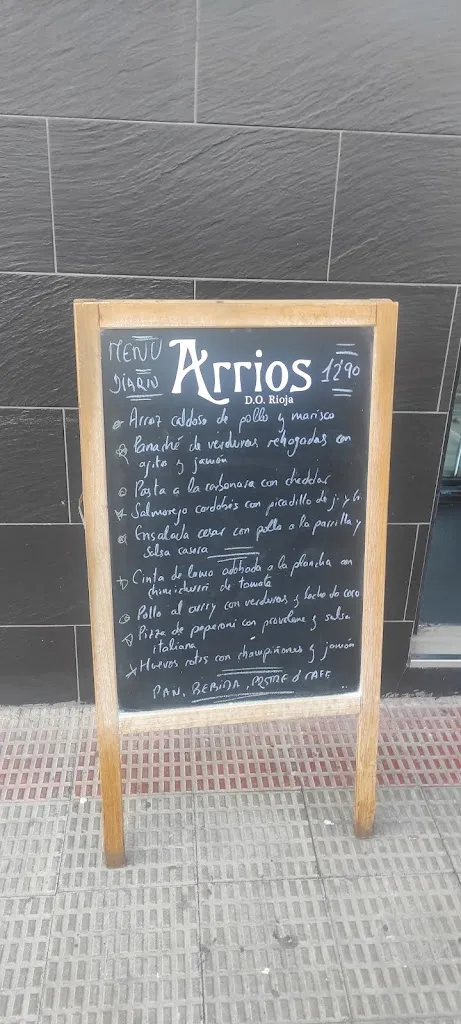 MENÚ
DIARIO
Arrios
D.O. Rioja
12'90
Arroz caldoso de pollo y marisco
Panaché de verduras rehogadas con
ajito y jamón
Pasta a la carbonara con cheddar
Salmorejo cordobés con picadillo de j. y h.
Ensalada cesar con pollo a la parrilla y
salsa casera
Cinta de lomo adobada a la plancha con
chimichurri de tomate
Pollo al curry con verduras y leche de coco
Pizza de peperoni con provolone y salsa
italiana
Huevos rotos con champiñones y jamón
PAN, BEBIDA, POSTRE ó CAFE